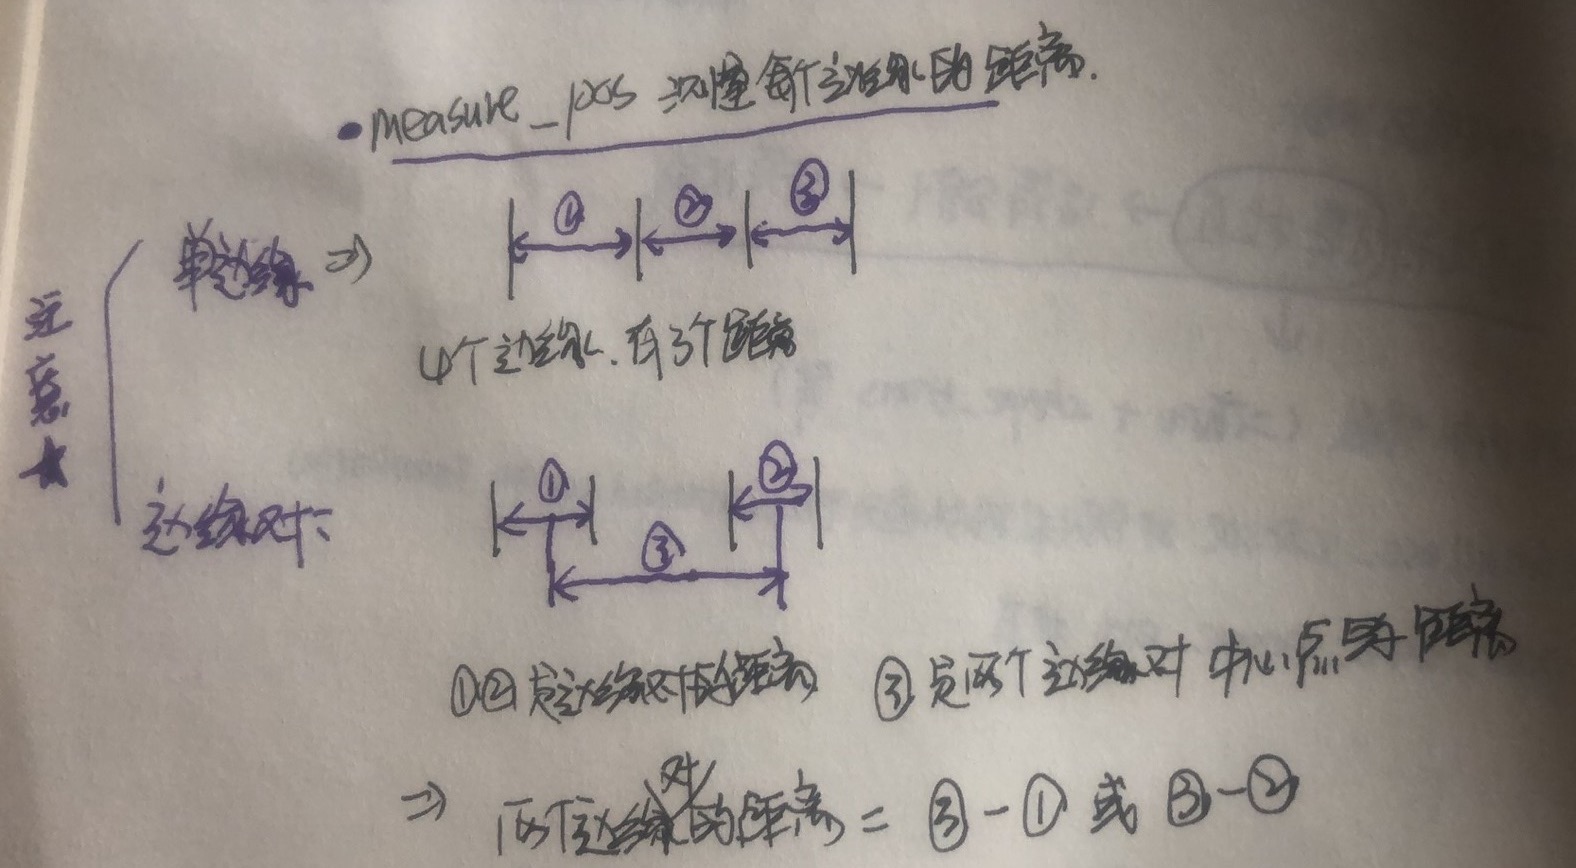 •measure_pos 测量每个边缘的距离.
① ② ③
单边缘 ⇒
注意★
4个边缘.有3个距离
① ②
边缘对:
③
①②是边缘对的距离 ③是两个边缘对中心点的距离
⇒ 两个边缘对的距离 = ③-① 或 ③-②